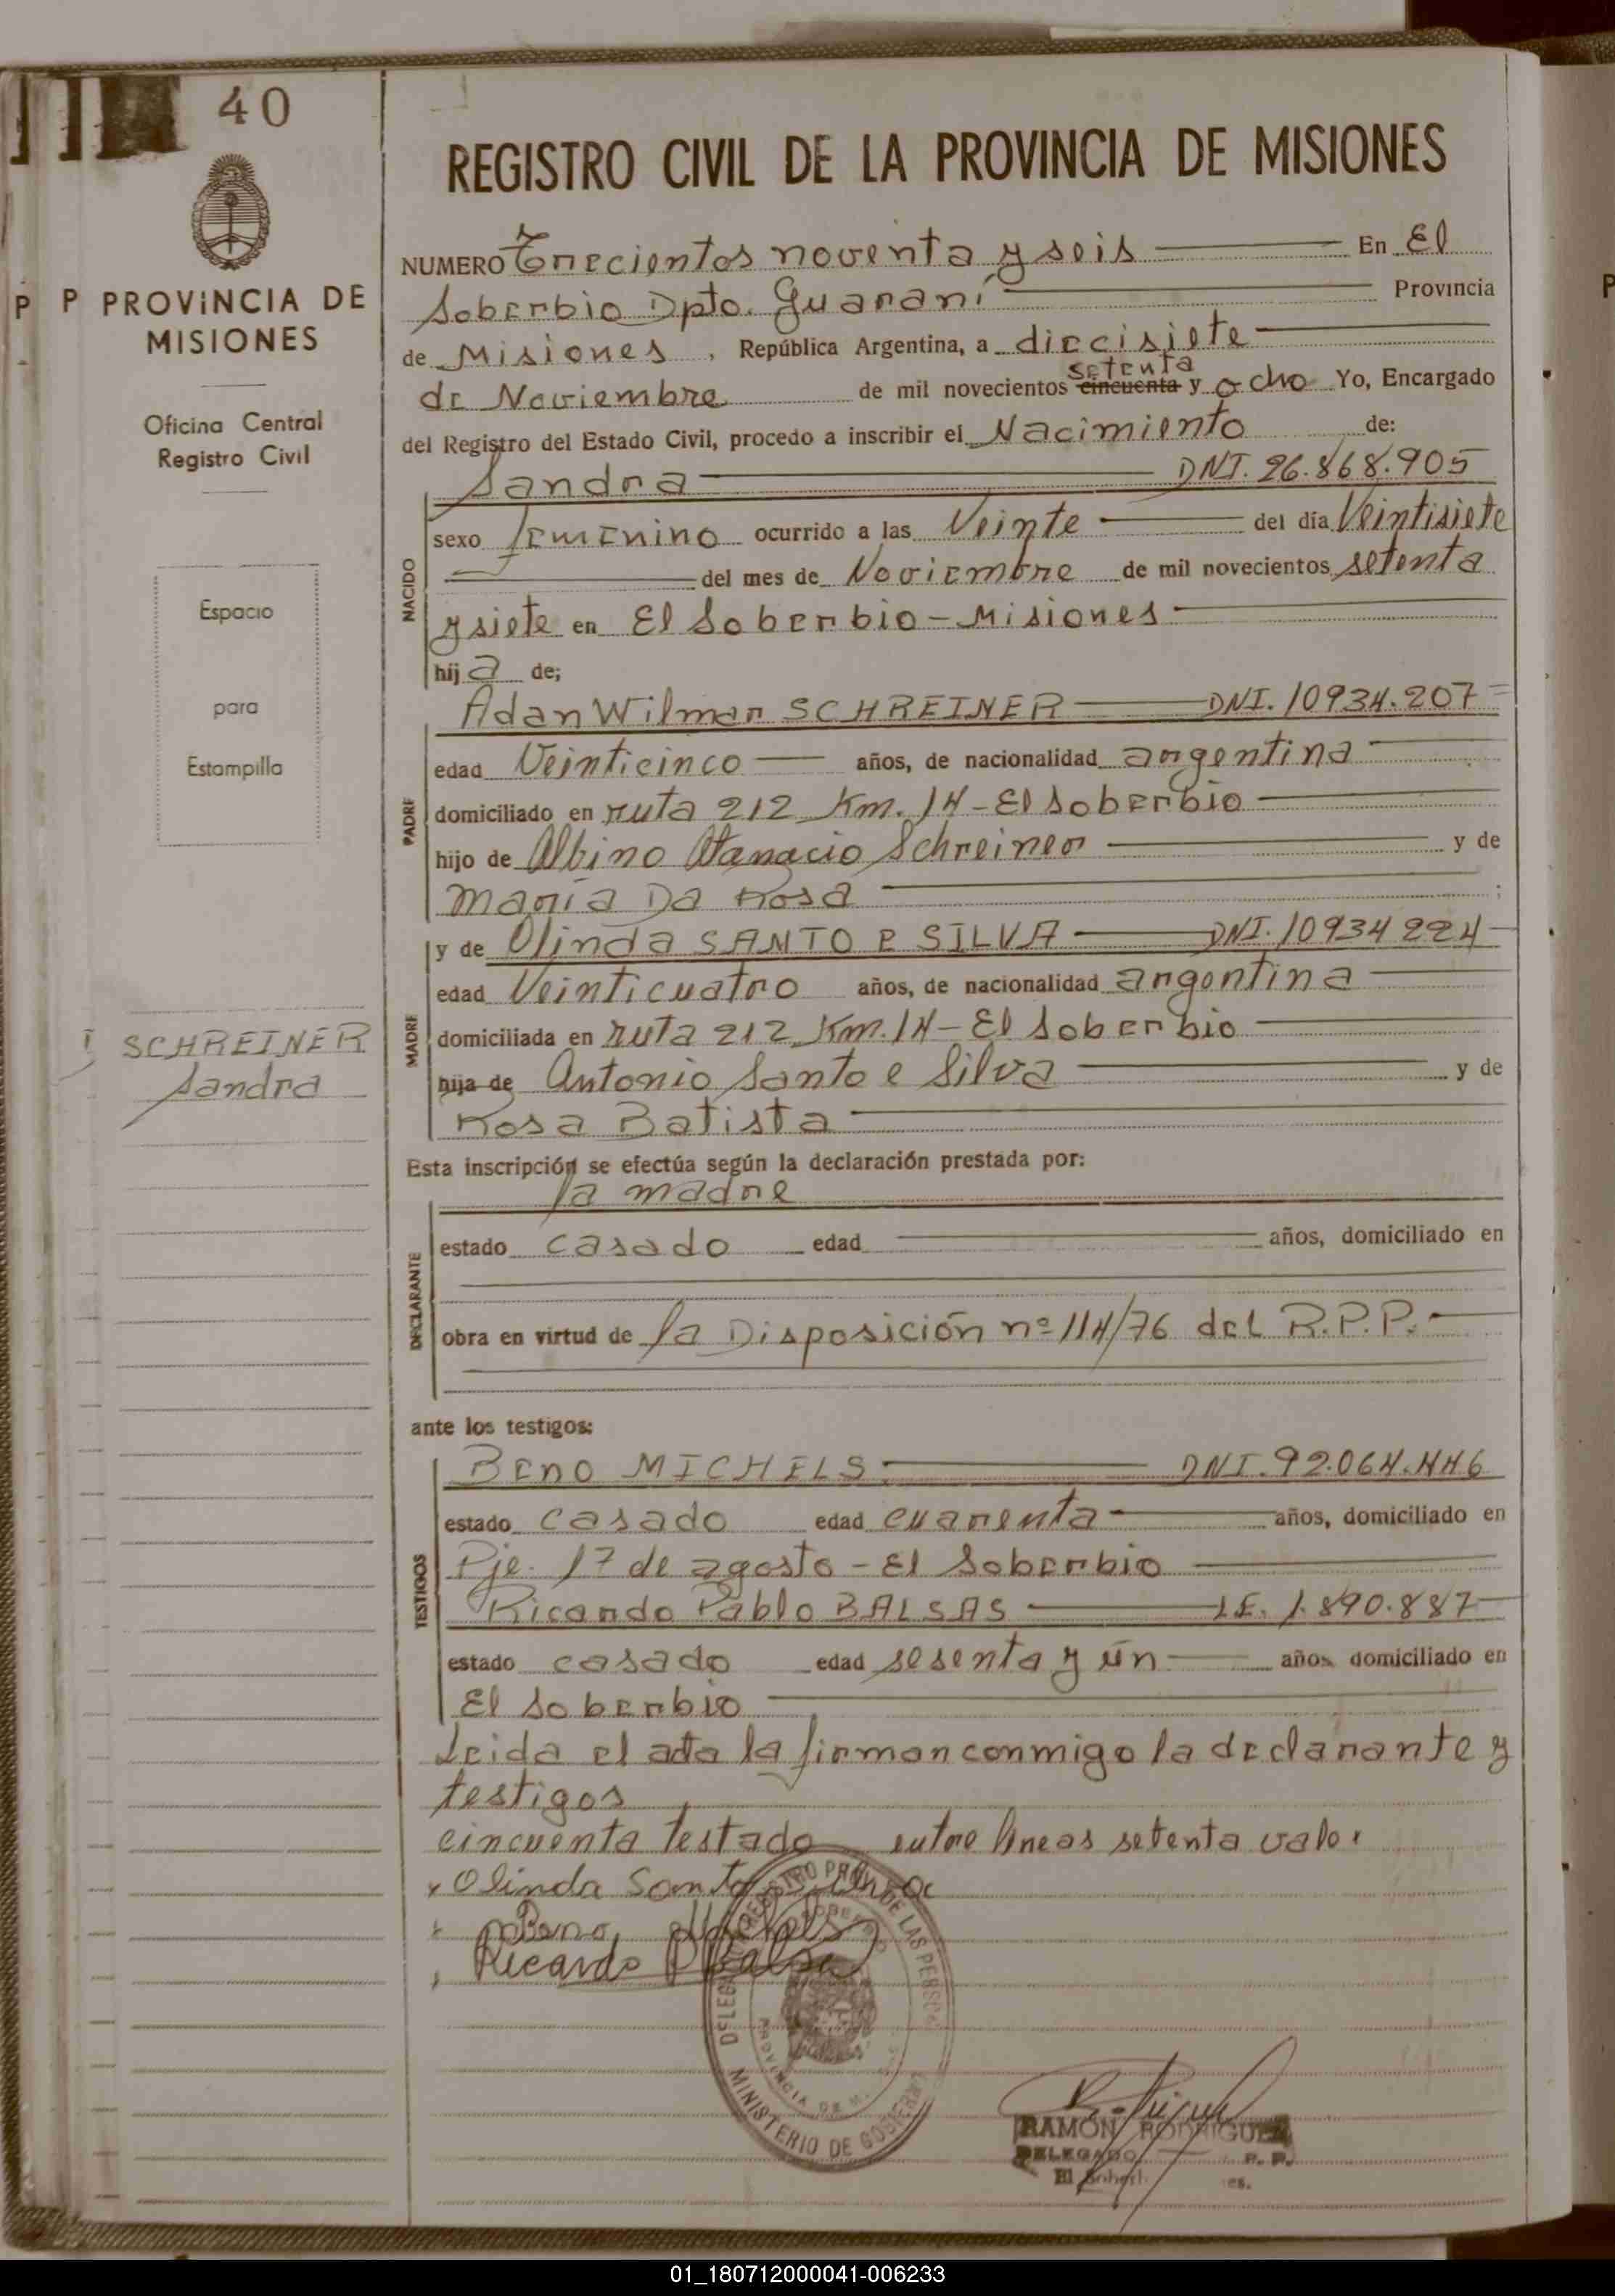 40
PROVINCIA DE
MISIONES
Oficina Central
Registro Civil
Espacio
para
Estampilla
SCHREINER
Sandra
REGISTRO CIVIL DE LA PROVINCIA DE MISIONES
NUMERO Trecientos noventa y seis En El
Soberbio Dpto. Guaraní Provincia
de Misiones, República Argentina, a diecisiete
setenta
de Noviembre de mil novecientos cincuenta y ocho Yo, Encargado
del Registro del Estado Civil, procedo a inscribir el Nacimiento de:
Sandra DNI. 26.868.905
NACIDO
sexo femenino ocurrido a las Veinte del día Veintisiete
del mes de Noviembre de mil novecientos setenta
y siete en El Soberbio - Misiones
hij a de;
Adan Wilmar SCHREINER DNI. 10934.207
PADRE
edad Veinticinco años, de nacionalidad argentina
domiciliado en ruta 212 Km. 14 - El Soberbio
hijo de Albino Atanacio Schreiner y de
María Da Rosa ;
y de Olinda SANTO E SILVA DNI. 10934224
MADRE
edad Veinticuatro años, de nacionalidad argentina
domiciliada en ruta 212 Km. 14 - El Soberbio
hija de Antonio Santo e Silva y de
Rosa Batista
Esta inscripción se efectúa según la declaración prestada por:
la madre
DECLARANTE
estado casado edad años, domiciliado en
obra en virtud de la Disposición nº 114/76 del R.P.P.
ante los testigos:
TESTIGOS
Beno MICHELS DNI. 92.064.446
estado casado edad cuarenta años, domiciliado en
Pje. 17 de agosto - El Soberbio
Ricardo Pablo BALSAS L.E. 1.890.887
estado casado edad sesenta y ún años domiciliado en
El Soberbio
Leida el acta la firman conmigo la declarante y
testigos
cincuenta testado entre lineas setenta vale
Olinda Santo e Silva
Beno Michels
Ricardo P Balsa
MINISTERIO DE GOBIERNO
RAMÓN RODRIGUEZ
DELEGADO R. P. P.
El Soberb
01_180712000041-006233